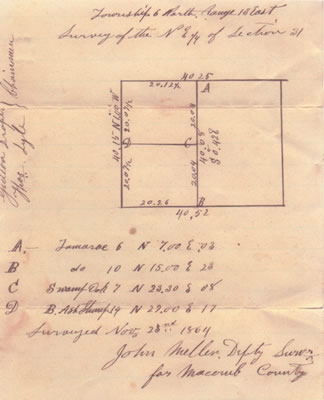 Township 6 North Range 15 East
Survey of the N E 1/4 of Section 31
Chainmen
Lyle
40.25
20.12½
A
20.07½
20.04
40.15 N 00 W
D
C
40.05
S 0.42E
20.07½
20.04
20.26
B
40.52
A Tamarac 6 N 7.00 E 03
B do 10 N 15.00 E 23
C Swamp Oak 7 N 23.30 E 08
D B. Ash Stump 14 N 27.00 E 17
Surveyed Nov 23rd 1864
John Mellen, Dpty Survr
for Macomb County